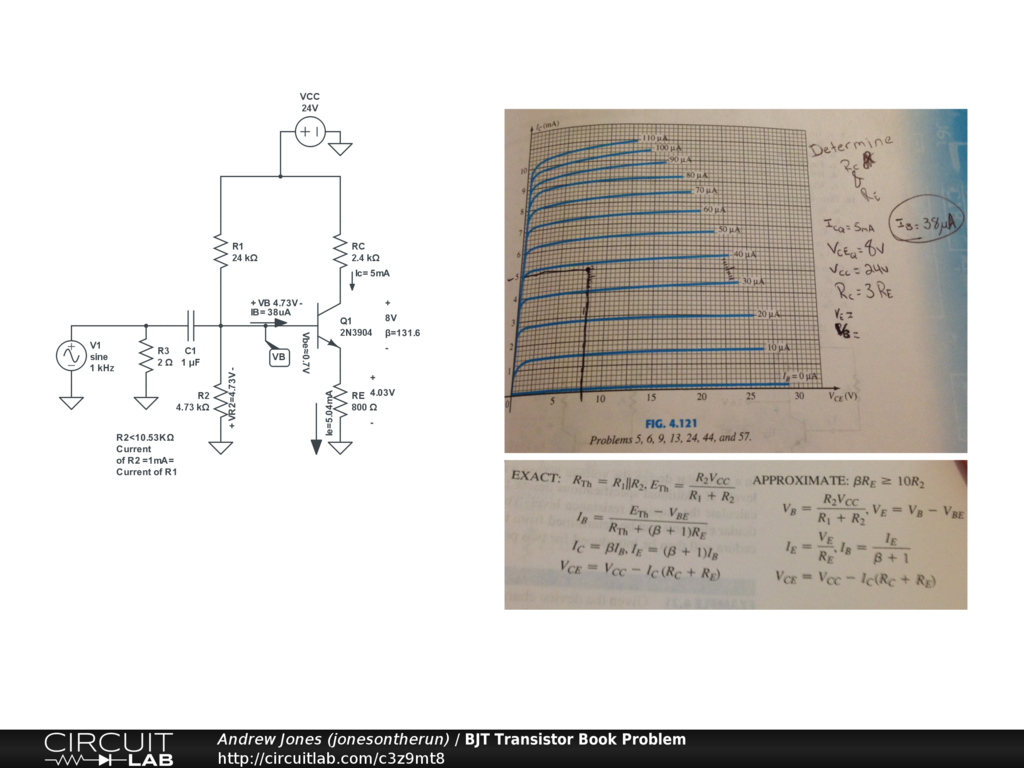 VCC
24V
R1
24 kΩ
RC
2.4 kΩ
Ic= 5mA
+ VB 4.73V -
IB= 38uA
Q1
2N3904
+
8V
β=131.6
-
Vbe=0.7V
VB
V1
sine
1 kHz
R3
2 Ω
C1
1 µF
R2
4.73 kΩ
+ VR2=4.73V -
RE
800 Ω
+
4.03V
-
Ie=5.04mA
R2<10.53KΩ
Current
of R2 =1mA=
Current of R1
IC (mA)
110 µA
100 µA
90 µA
80 µA
70 µA
60 µA
50 µA
40 µA
30 µA
20 µA
10 µA
IB = 0 µA
10
9
8
7
6
5
4
3
2
1
0
5
10
15
20
25
30
VCE (V)
FIG. 4.121
Problems 5, 6, 9, 13, 24, 44, and 57.
Determine
&
RE
ICQ = 5mA
VCEQ = 8V
VCC = 24V
RC = 3 RE
VE =
VB =
IB = 38µA
EXACT: RTh = R1||R2, ETh = R2VCC / R1 + R2
IB = ETh − VBE / RTh + (β + 1)RE
IC = βIB, IE = (β + 1)IB
VCE = VCC − IC(RC + RE)
APPROXIMATE: βRE ≥ 10R2
VB = R2VCC / R1 + R2, VE = VB − VBE
IE = VE / RE, IB = IE / β + 1
VCE = VCC − IC(RC + RE)
CIRCUIT
LAB
Andrew Jones (jonesontherun) / BJT Transistor Book Problem
http://circuitlab.com/c3z9mt8